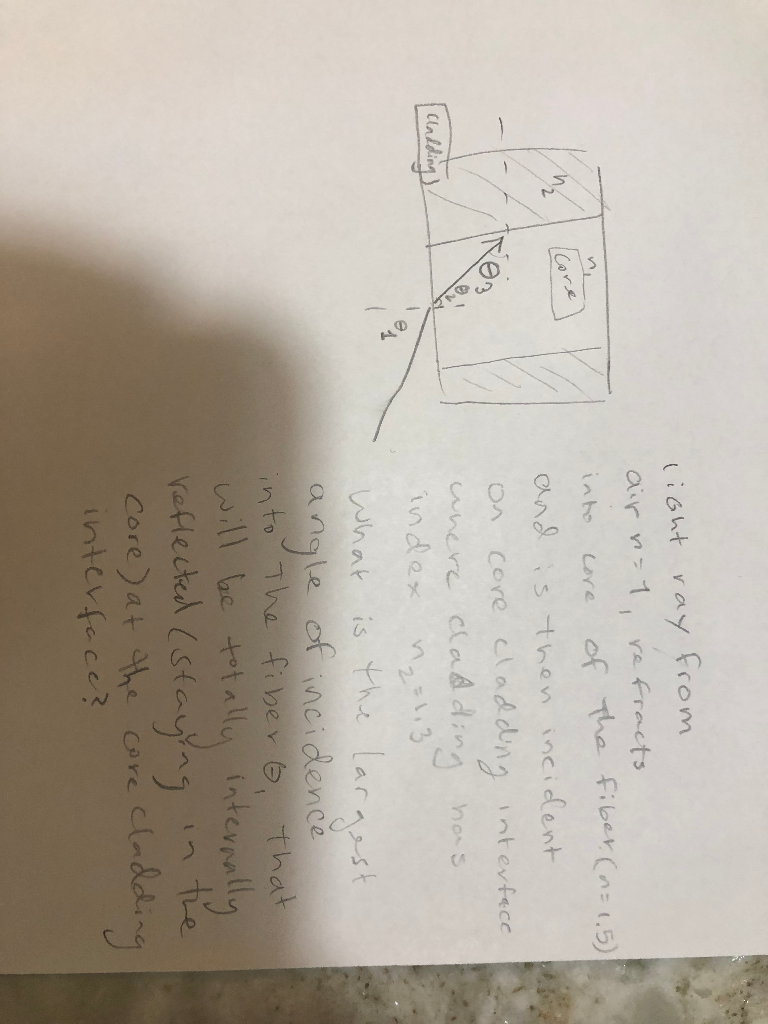 cladding
n2
n1
core
θ3
θ2
θ1
light ray from
air n=1, refracts
into core of the fiber (n=1.5)
and is then incident
on core cladding interface
where cladding has
index n2=1.3
What is the largest
angle of incidence
into the fiber θ, that
will be totally internally
reflected (staying in the
core) at the core cladding
interface?